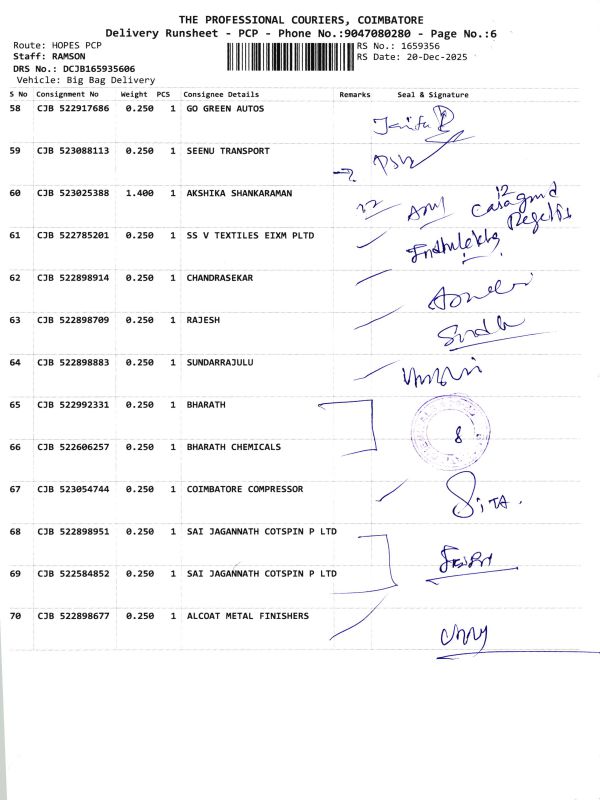 THE PROFESSIONAL COURIERS, COIMBATORE
Delivery Runsheet - PCP - Phone No.:9047080280 - Page No.:6
Route: HOPES PCP RS No.: 1659356
Staff: RAMSON RS Date: 20-Dec-2025
DRS No.: DCJB165935606
Vehicle: Big Bag Delivery
S No Consignment No Weight PCS Consignee Details Remarks Seal & Signature
58 CJB 522917686 0.250 1 GO GREEN AUTOS
59 CJB 523088113 0.250 1 SEENU TRANSPORT
60 CJB 523025388 1.400 1 AKSHIKA SHANKARAMAN 12
61 CJB 522785201 0.250 1 SS V TEXTILES EIXM PLTD
62 CJB 522898914 0.250 1 CHANDRASEKAR
63 CJB 522898709 0.250 1 RAJESH
64 CJB 522898883 0.250 1 SUNDARRAJULU
65 CJB 522992331 0.250 1 BHARATH
8
66 CJB 522606257 0.250 1 BHARATH CHEMICALS
67 CJB 523054744 0.250 1 COIMBATORE COMPRESSOR
68 CJB 522898951 0.250 1 SAI JAGANNATH COTSPIN P LTD
69 CJB 522584852 0.250 1 SAI JAGANNATH COTSPIN P LTD
70 CJB 522898677 0.250 1 ALCOAT METAL FINISHERS